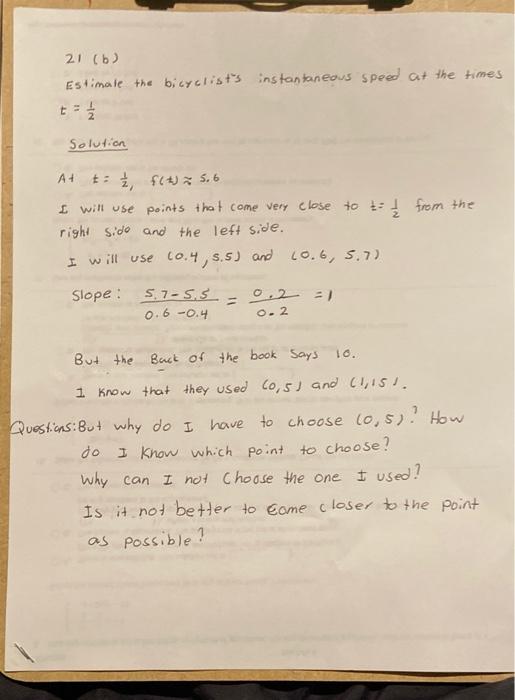 21 (b)
Estimate the bicyclist's instantaneous speed at the times
t = 1/2
Solution
At t = 1/2, f(t) ≈ 5.6
I will use points that come very close to t = 1/2 from the
right side and the left side.
I will use (0.4, 5.5) and (0.6, 5.7)
Slope: (5.7-5.5)/(0.6-0.4) = 0.2/0.2 = 1
But the Back of the book says 10.
I know that they used (0,5) and (1,15).
Questions: But why do I have to choose (0,5)? How
do I know which point to choose?
Why can I not choose the one I used?
Is it not better to come closer to the point
as possible?